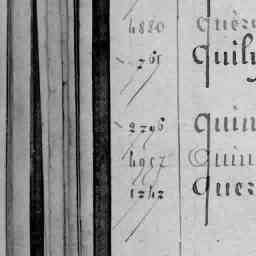 4880 Quér
765 Quily
2796 Quin
4957 Quin
1242 Quer